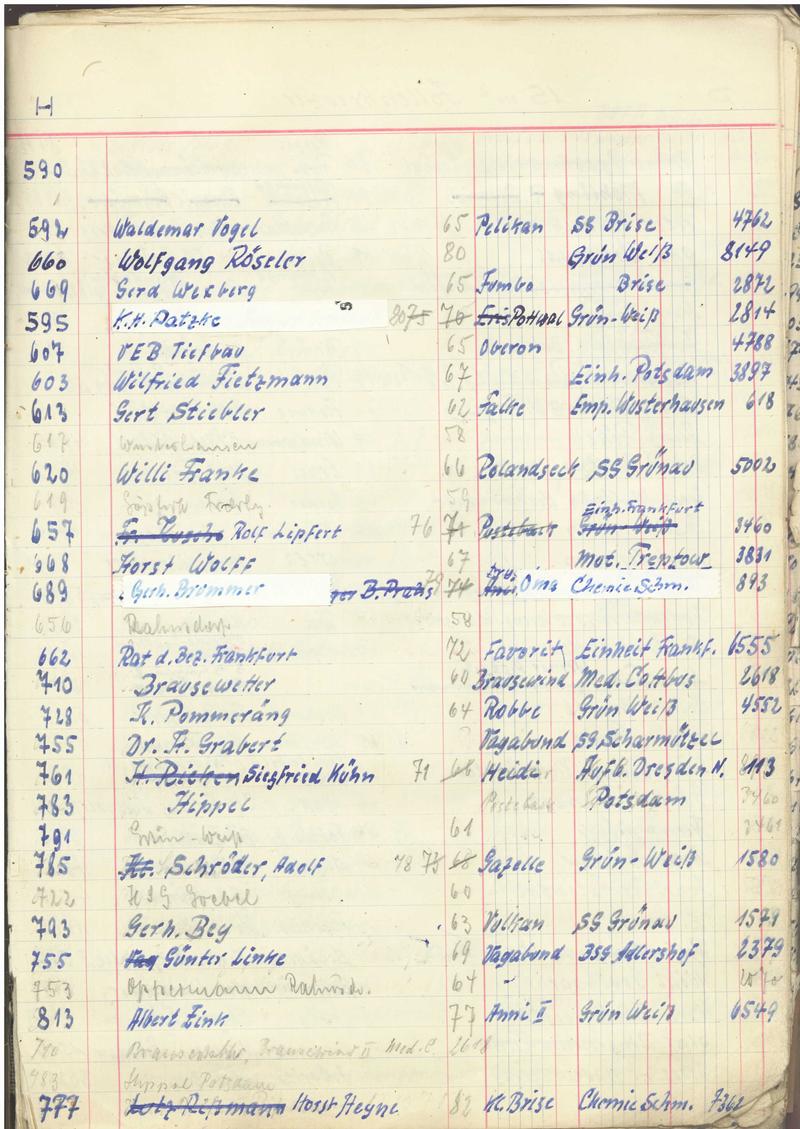 H
590
592 Waldemar Vogel 65 Pelikan SG Brise 4762
660 Wolfgang Röseler 80 Grün Weiß 8149
669 Gerd Wexberg 65 Jumbo Brise 2872
595 K.H. Patzke 80 75 70 Eris Pottwal Grün-Weiß 2814
607 VEB Tiefbau 65 Oberon 4788
603 Wilfried Fietzmann 67 Einh. Potsdam 3897
613 Gert Stiebler 62 Falke Emp. Wusterhausen 618
617 58
620 Willi Franke 66 Rolandseck SG Grünau 5002
619 59
Einh. Frankfurt
657 Rolf Lipfert 76 71 Grün-Weiß 3460
668 Horst Wolff 67 Mot. Treptow 3831
689 Gerh. Brommer 79 74 Oma Chemie Schm. 893
656 Rahnsdorf 58
662 Rat d. Bez. Frankfurt 72 Favorit Einheit Frankf. 6555
710 Brausewetter 60 Brausewind Med. Cottbus 2618
728 K. Pommeräng 64 Robbe Grün Weiß 4552
755 Dr. A. Grabert Vagabund SG Scharmützel
761 Siegfried Kühn 71 68 Heidi Aufb. Dresden N. 113
783 Hippel Potsdam 3460
791 Grün-Weiß 61 3461
785 Schröder, Adolf 78 73 68 Gazelle Grün-Weiß 1580
722 HSG Goebel 60
793 Gerh. Bey 63 Vulkan SG Grünau 1579
755 Günter Linke 69 Vagabund BSG Adlershof 2379
753 Oppermann 64
813 Albert Zink 77 Anni II Grün Weiß 6549
710 Brausewetter, Brausewind II Med. C. 2618
783 Hippel Potsdam
777 Lutz Rißmann Horst Heyne 82 Kl. Brise Chemie Schm. 7362